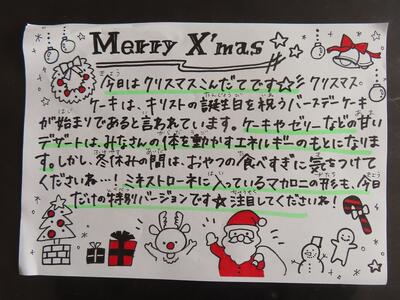 Merry X'mas
今日はクリスマスこんだてです☆彡 クリスマス
ケーキは、キリストの誕生日を祝うバースデーケーキ
が始まりであると言われています。ケーキやゼリーなどの甘い
デザートは、みなさんの体を動かすエネルギーのもとになりま
す。しかし、冬休みの間は、おやつの食べすぎに気をつけて
くださいね…!ミネストローネに入っているマカロニの形も、今日
だけの特別バージョンです☆注目してくださいね!